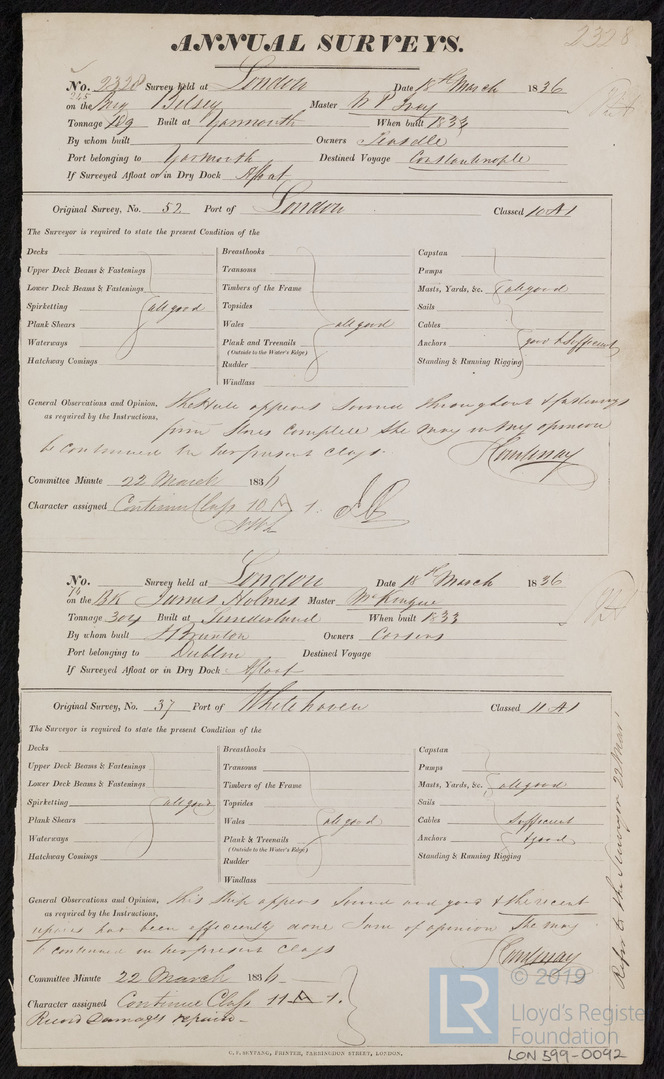 2328
ANNUAL SURVEYS.
No. 2328 Survey held at London Date 18th March 1836
245
on the Brig Belsey Master
Tonnage 109 Built at Yarmouth When built 1833
By whom built Owners
Port belonging to Yarmouth Destined Voyage Constantinople
If Surveyed Afloat or in Dry Dock Afloat
Original Survey, No. 52 Port of London Classed 10 A1
The Surveyor is required to state the present Condition of the
Decks Breasthooks Capstan
Upper Deck Beams & Fastenings Transoms Pumps
Lower Deck Beams & Fastenings Timbers of the Frame Masts, Yards, &c. all good
Spirketting all good Topsides Sails
Plank Shears Wales all good Cables
Waterways Plank and Treenails Anchors good & sufficient
(Outside to the Water's Edge)
Hatchway Comings Rudder Standing & Running Rigging
Windlass
General Observations and Opinion, The Hule appears Sound throughout & fastenings
as required by the Instructions, firm Stores Complete She may in my opinion
be continued in her present class.
Committee Minute 22 March 1836
Character assigned Continue Class 10 A 1.
No. Survey held at London Date 18th March 1836
74
on the BK James Holmes Master
Tonnage 304 Built at Sunderland When built 1833
By whom built Owners
Port belonging to Dublin Destined Voyage
If Surveyed Afloat or in Dry Dock Afloat
Original Survey, No. 37 Port of Whitehaven Classed 11 A1
The Surveyor is required to state the present Condition of the
Decks Breasthooks Capstan
Upper Deck Beams & Fastenings Transoms Pumps
Lower Deck Beams & Fastenings Timbers of the Frame Masts, Yards, &c. all good
Spirketting all good Topsides Sails
Plank Shears Wales all good Cables Sufficient
Waterways Plank & Treenails Anchors & good
(Outside to the Water's Edge)
Hatchway Comings Rudder Standing & Running Rigging
Windlass
General Observations and Opinion, this Ship appears Sound and good & the recent
as required by the Instructions, repairs has been efficiently done I am of opinion She may
be continued in her present class
Committee Minute 22 March 1836
Character assigned Continue Class 11 A 1.
Record Damages repaired
Refer to the Surveyor 22 Mar
C. F. SEYFANG, PRINTER, FARRINGDON STREET, LONDON.
LR
© 2019
Lloyd's Register
Foundation
LON 599-0092